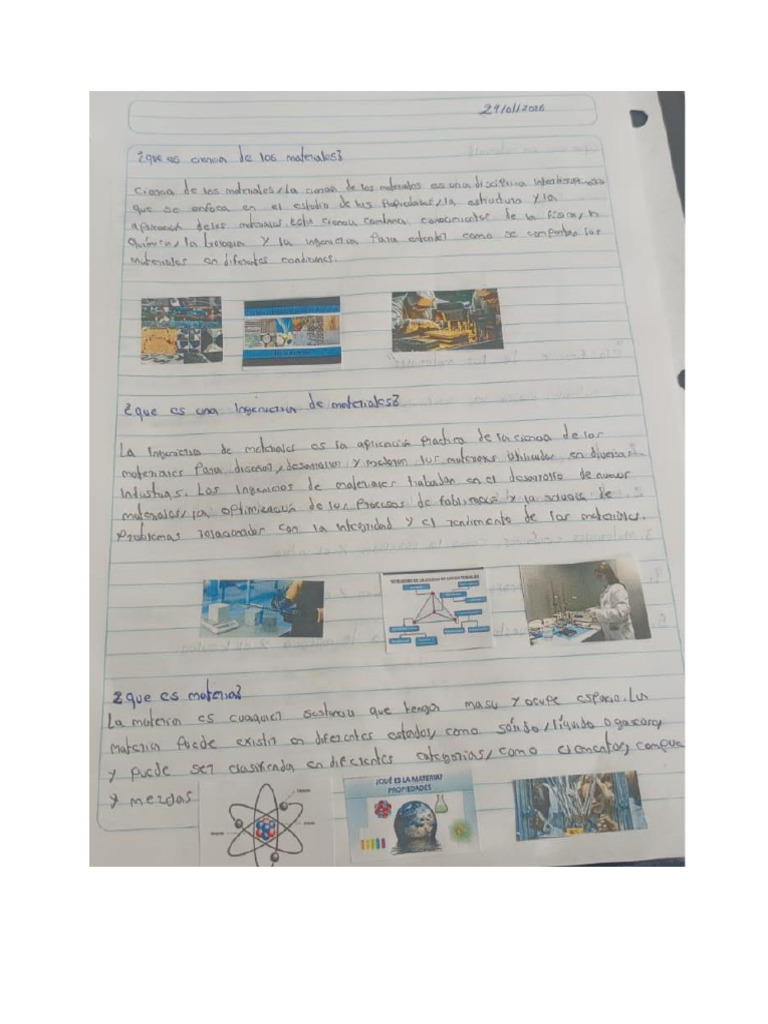 29/01/2026
¿que es ciencia de los materiales?
Ciencia de los materiales/La ciencia de los materiales es una disciplina interdisciplinaria
que se enfoca en el estudio de las Propiedades, la estructura y la
aplicación de los materiales esta ciencia combina conocimientos de la física, la
química, la biología y la ingeniería Para entender como se comportan los
materiales en diferentes condiciones.
¿que es una Ingenieria de materiales?
La Ingenieria de materiales es la aplicación practica de la ciencia de los
materiales Para diseñar, desarrollar y mejorar los materiales utilizados en diversas
industrias. Los Ingenieros de materiales trabajan en el desarrollo de nuevos
materiales, la optimización de los Procesos de fabricación y la solución de
Problemas relacionados con la integridad y el rendimiento de los materiales.
¿que es materia?
La materia es cualquier sustancia que tenga masa y ocupe espacio. La
materia Puede existir en diferentes estados, como sólido, líquido o gaseoso,
y puede ser clasificada en diferentes categorías, como elementos,
y mezclas
¿QUÉ ES LA MATERIA?
PROPIEDADES